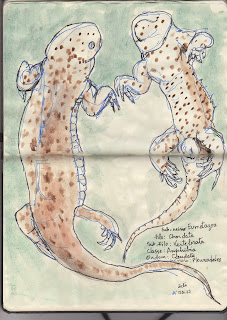 Sub-reino Eumetazoa
Filo: Chordata
Sub-filo: Vertebrata
Classe: Amphibia
Ordem: Caudata
Pleurodeles